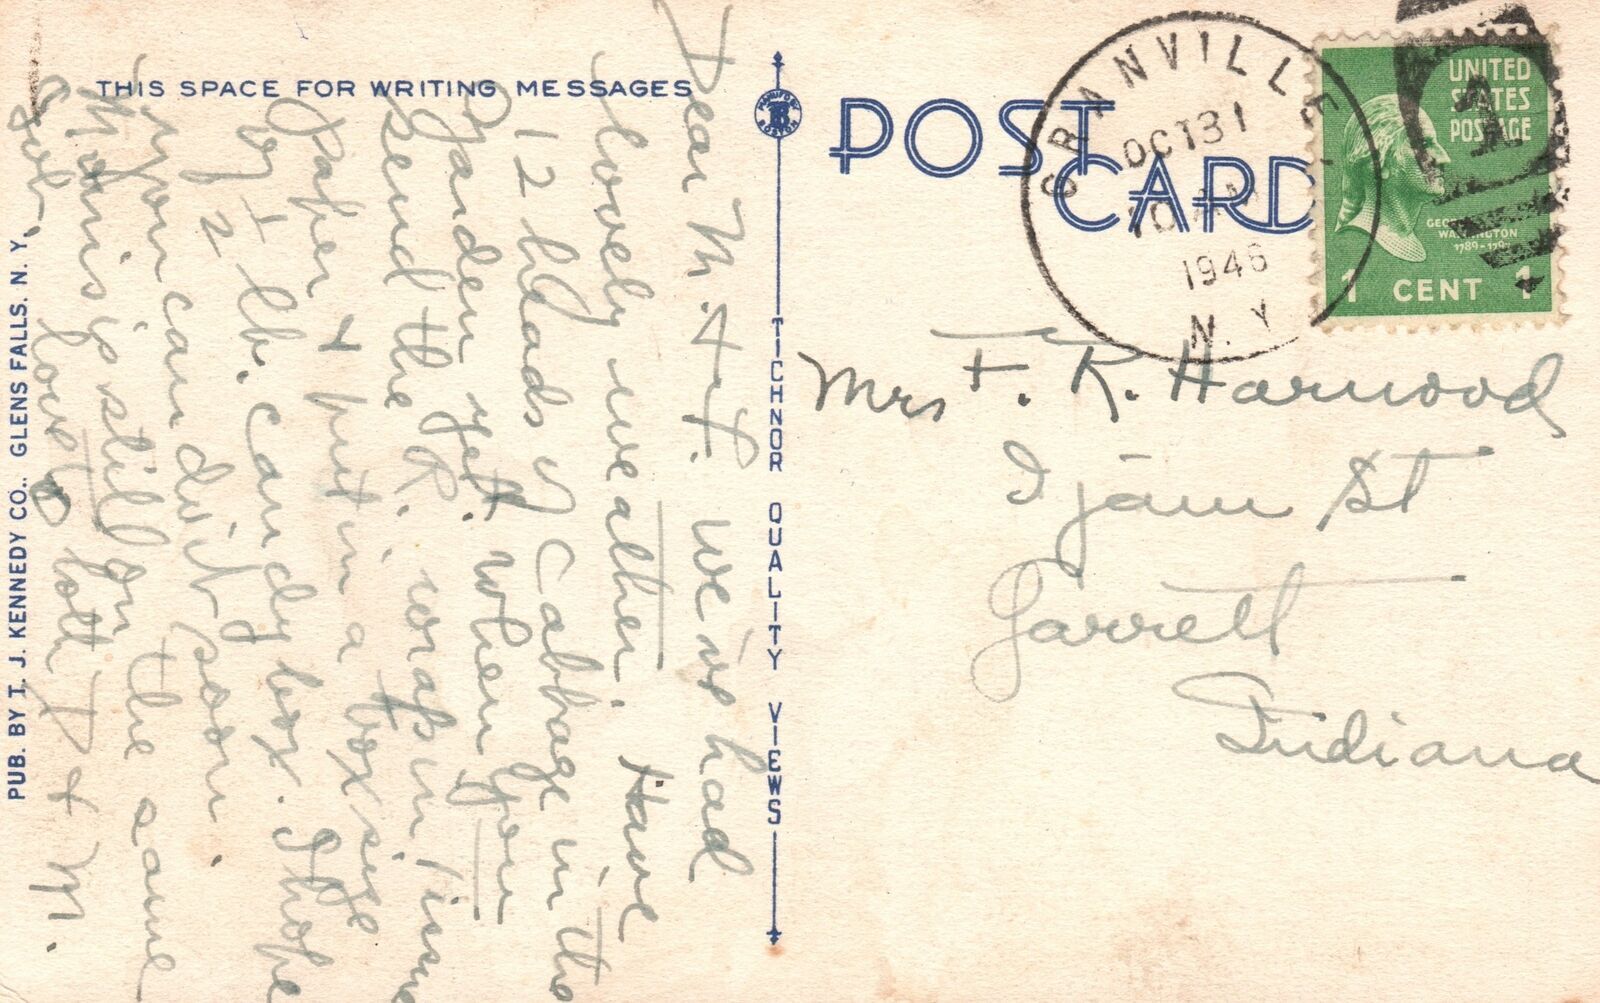 THIS SPACE FOR WRITING MESSAGES
POST
CARD
GRANVILLE,
OCT 31
10 AM
1946
N. Y.
UNITED
STATES
POSTAGE
GEORGE
WASHINGTON
1789-1797
1 CENT 1
Dear M. + F. we've had
lovely weather. Have
12 heads of Cabbage in the
garden yet. When you
send the R. wrap in tissue
paper + put in a box size
of 1/2 lb. candy box. I hope
you can do it soon.
Morris is still on the same
job, love to both D + M.
Mrs F. R. Harwood
Ijam St
Garrett
Indiana
TICHNOR QUALITY VIEWS
PUB. BY T. J. KENNEDY CO., GLENS FALLS, N. Y.